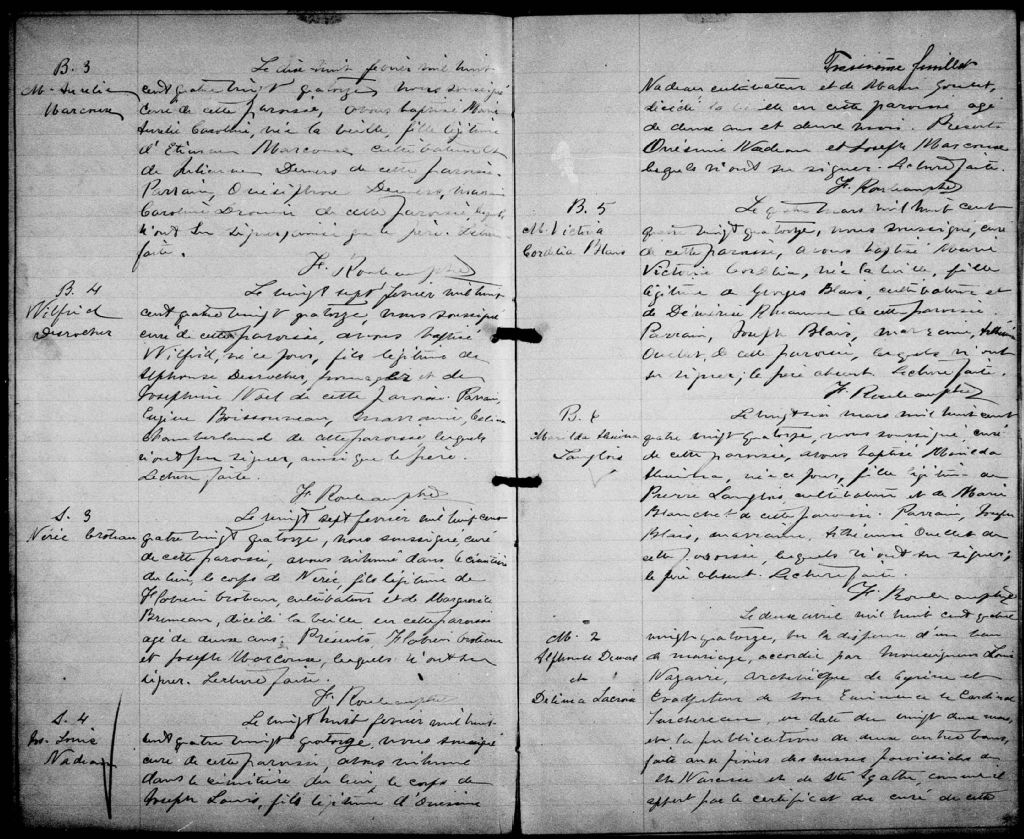 B. 3
M. Aurélie
Marcoux
Le dix huit février mil huit
cent quatre vingt quatorze, nous soussigné
curé de cette paroisse, avons baptisé Marie
Aurélie Caroline, née la veille, fille légitime
d'Etienne Marcoux cultivateur et
de Julienne Demers de cette paroisse.
Parrain, Onésiphore Demers, marraine
Caroline Drouin de cette paroisse, lesquels
n'ont su signer ainsi que le père. Lecture
faite.
F. Rouleau ptre
B. 4
Wilfrid
Desrocher
Le vingt sept février mil huit
cent quatre vingt quatorze nous soussigné
curé de cette paroisse, avons baptisé
Wilfrid, né ce jour, fils légitime de
Alphonse Desrocher, fromager et de
Joséphine Noël de cette paroisse. Parrain,
Eugène Boissonneau, marraine, Célina
Chamberland de cette paroisse lesquels
n'ont pu signer, ainsi que le père.
Lecture faite.
F. Rouleau ptre
S. 3
Nérée Croteau
Le vingt sept février mil huit cent
quatre vingt quatorze, nous soussigné, curé
de cette paroisse, avons inhumé dans le cimetière
du lieu, le corps de Nérée, fils légitime de
Flobien Croteau, cultivateur et de Marguerite
Bruneau, décédé la veille en cette paroisse
agé de deux ans. Présents, Flobien Croteau
et Joseph Marcoux, lesquels n'ont su
signer. Lecture faite.
F. Rouleau ptre
S. 4
Jos. Louis
Nadeau
Le vingt huit février mil huit
cent quatre vingt quatorze, nous soussigné
curé de cette paroisse, avons inhumé
dans le cimetière du lieu, le corps de
Joseph Louis, fils légitime d'Onésime
Troisième feuillet
Nadeau cultivateur et de Marie Goulet,
décédé la veille en cette paroisse agé
de deux ans et deux mois. Présents
Onésime Nadeau et Joseph Marcoux
lesquels n'ont su signer. Lecture faite.
F. Rouleau ptre
B. 5
M. Victoria
Cordélia Blais
Le quatre mars mil huit cent
quatre vingt quatorze, nous soussigné, curé
de cette paroisse, avons baptisé Marie
Victoria Cordélia, née la veille, fille
légitime de Georges Blais, cultivateur et
de Démérise de cette paroisse.
Parrain, Joseph Blais, marraine,
Ouellet, de cette paroisse, lesquels n'ont
su signer; le père absent. Lecture faite.
F. Rouleau ptre
B. 6
Langlois
Le vingt six mars mil huit cent
quatre vingt quatorze, nous soussigné, curé
de cette paroisse, avons baptisé
née ce jour, fille légitime de
Pierre Langlois cultivateur et de Marie
Blanchet de cette paroisse. Parrain, Joseph
Blais, marraine, Ouellet de
cette paroisse, lesquels n'ont su signer;
le père absent. Lecture faite.
F. Rouleau ptre
M. 2
Alphonse Demers
et
Délima Lacroix
Le deux avril mil huit cent quatre
vingt quatorze, vu la dispense d'un ban
de mariage, accordée par Monseigneur Louis
Nazaire, archevêque de Cyrène et
Coadjuteur de Son Eminence le Cardinal
Taschereau, en date du vingt deux mars,
vu la publication de deux autres bans,
faite aux prônes des messes paroissiales de
St Narcisse et de Ste Agathe, comme il
appert par le certificat du curé de cette